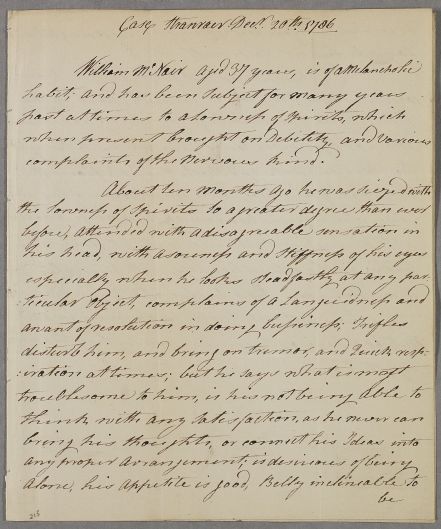 Case Stranraer Decr. 20th 1786
William McNair aged 37 years, is of a Melancholic
habit; and has been subject for many years
past at times to a Lowness of Spirits, which
when present brought on Debility, and various
complaints of the Nervous kind.
About ten Months ago he was seized with
the lowness of Spirits to a greater degree than ever
before, attended with a disagreeable sensation in
his head, with a soreness and Stiffness of his eyes
especially when he looks steadfastly at any par-
ticular object, complains of a Languidness and
a want of resolution in doing business; Trifles
disturb him, and bring on tremor, and Quick resp-
iration at times; but he says what is most
troublesome to him, is his not being able to
think with any satisfaction, as he never can
bring his thoughts, or connect his Ideas into
any proper arrangement; is desirous of being
alone, his Appetite is good, Belly inclinable to
be
215